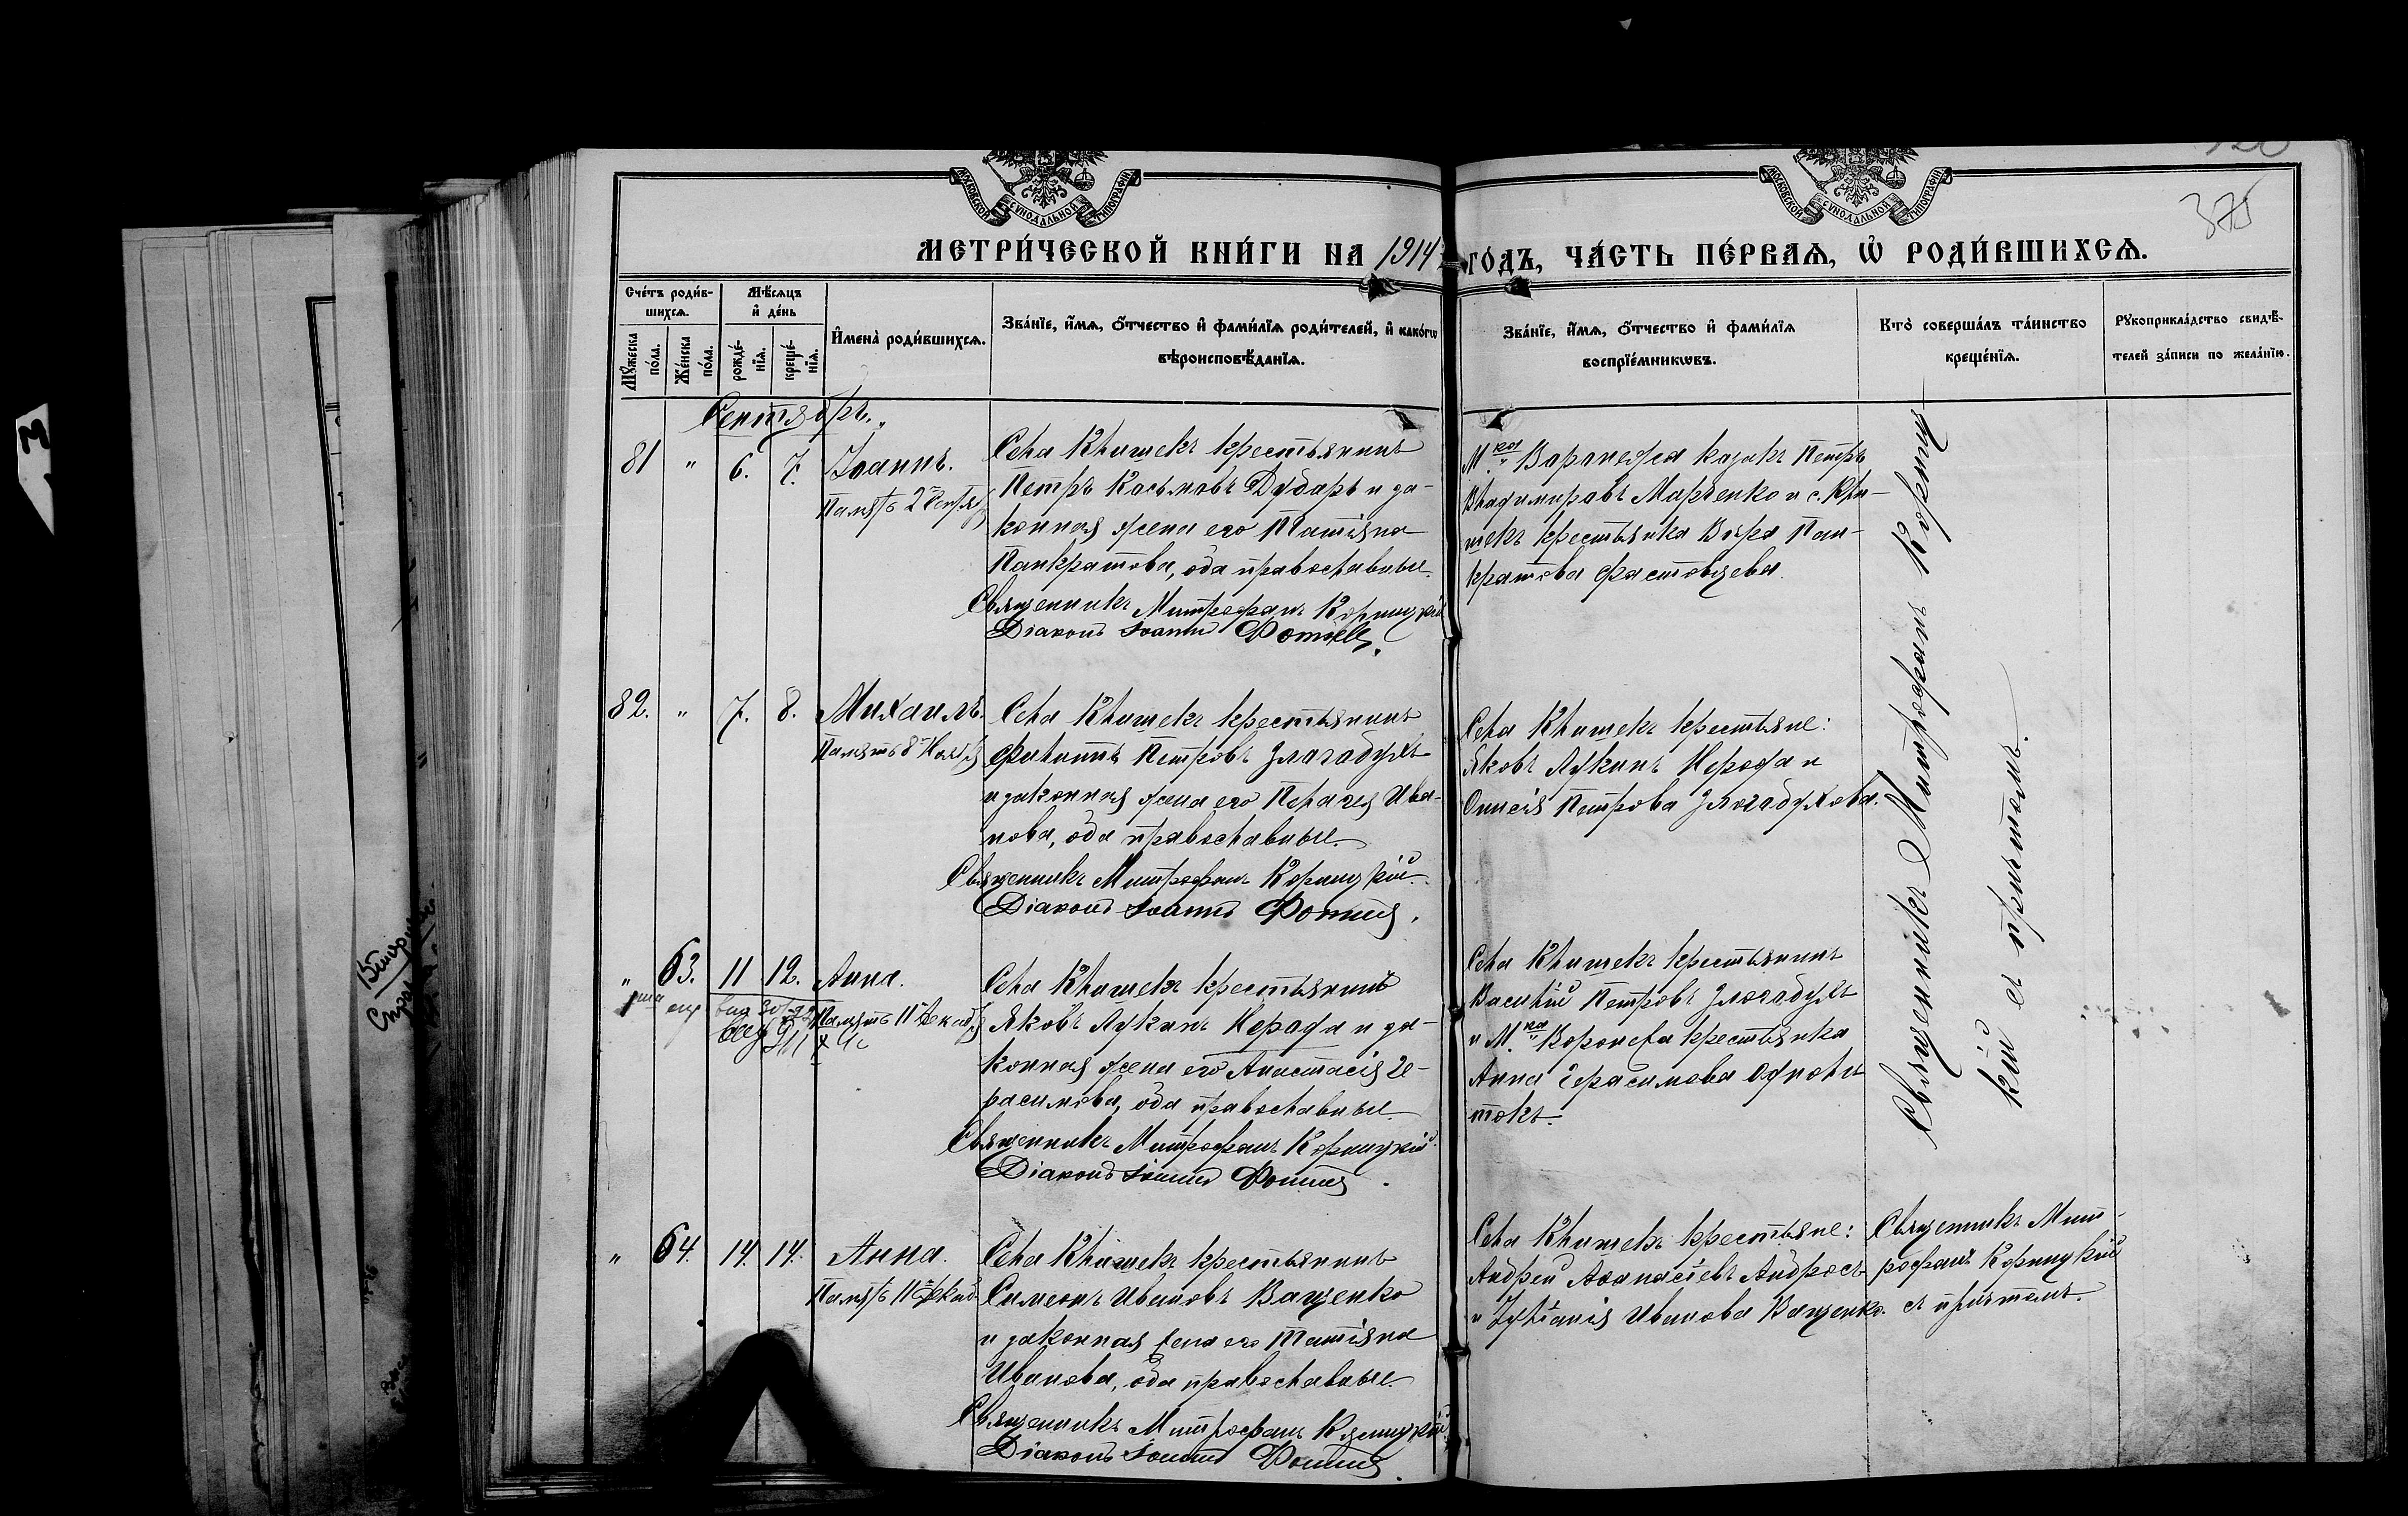 МОСКОВСКОЙ СУНОДАЛЬНОЙ ТИПОГРАФІИ
МОСКОВСКОЙ СУНОДАЛЬНОЙ ТИПОГРАФІИ
375
МЕТРИ́ЧЕСКОЙ КНИ́ГИ НА 1914 ГО́ДЪ, ЧА́СТЬ ПЕ́РВАѦ, Ѽ РОДИ́ВШИХСѦ.
Сче́тъ роди́в-
шихсѧ.
Мꙋ́жеска по́ла.
Же́нска по́ла.
Мѣ́сѧцъ
и҆ де́нь
рожде́-
нїѧ.
креще́-
нїѧ.
И҆мена̀ роди́вшихсѧ.
Зва́нїе, и҆́мѧ, ѻ҆́тчество и҆ фами́лїѧ роди́телей, и҆ како́гѡ
вѣроисповѣ́данїѧ.
Зва́нїе, и҆́мѧ, ѻ҆́тчество и҆ фами́лїѧ
воспрїе́мникѡвъ.
Кто̀ соверша́лъ та́инство
креще́нїѧ.
Рꙋкоприкла́дство свидѣ́-
телей за́писи по жела́нїю.
Сентябрь.
81 " 6. 7. Іоаннъ.
Память 2 Сентя
Села Клишекъ крестьянинъ
Петръ Косьмовъ Дударь и за-
конная жена его Татіяна
Панкратова, оба православные.
Священникъ Митрофанъ Корицкій
Діаконъ Іоаннъ
М.ка Воронежа казакъ Петръ
Владимировъ Марченко и с. Кли-
шекъ крестьянка Вѣра Пан-
кратова Фастовцева.
82. " 7. 8. Михаилъ.
Память 8 Ноября
Села Клишекъ крестьянинъ
Филиппъ Петровъ Злогодухъ
и законная жена его Пелагея Ива-
нова, оба православные.
Священникъ Митрофанъ Корицкій.
Діаконъ Іоаннъ
Села Клишекъ крестьяне:
Яковъ Лукинъ Нерода и
Онисія Петрова Злогодухова.
Священникъ Митрофанъ Кориц-
кій съ причтомъ.
" 63. 11 12. Анна.
Память 11 Декаб
Села Клишекъ крестьянинъ
Яковъ Лукинъ Нерода и за-
конная жена его Анастасія Ге-
расимова, оба православные.
Священникъ Митрофанъ Корицкій.
Діаконъ Іоаннъ
Села Клишекъ крестьянинъ
Василій Петровъ Злогодухъ
и М.ка Воронежа крестьянка
Анна Герасимова
токъ.
" 64. 14. 14. Анна.
Память 11 Декаб
Села Клишекъ крестьянинъ
Симеонъ Ивановъ Ващенко
и законная жена его Татіяна
Иванова, оба православные.
Священникъ Митрофанъ Корицкій.
Діаконъ Іоаннъ
Села Клишекъ крестьяне:
Андрей Аѳанасіевъ Андросъ
и Іуліанія Иванова Ващенко.
Священникъ Мит-
рофанъ Корицкій
съ причтомъ.